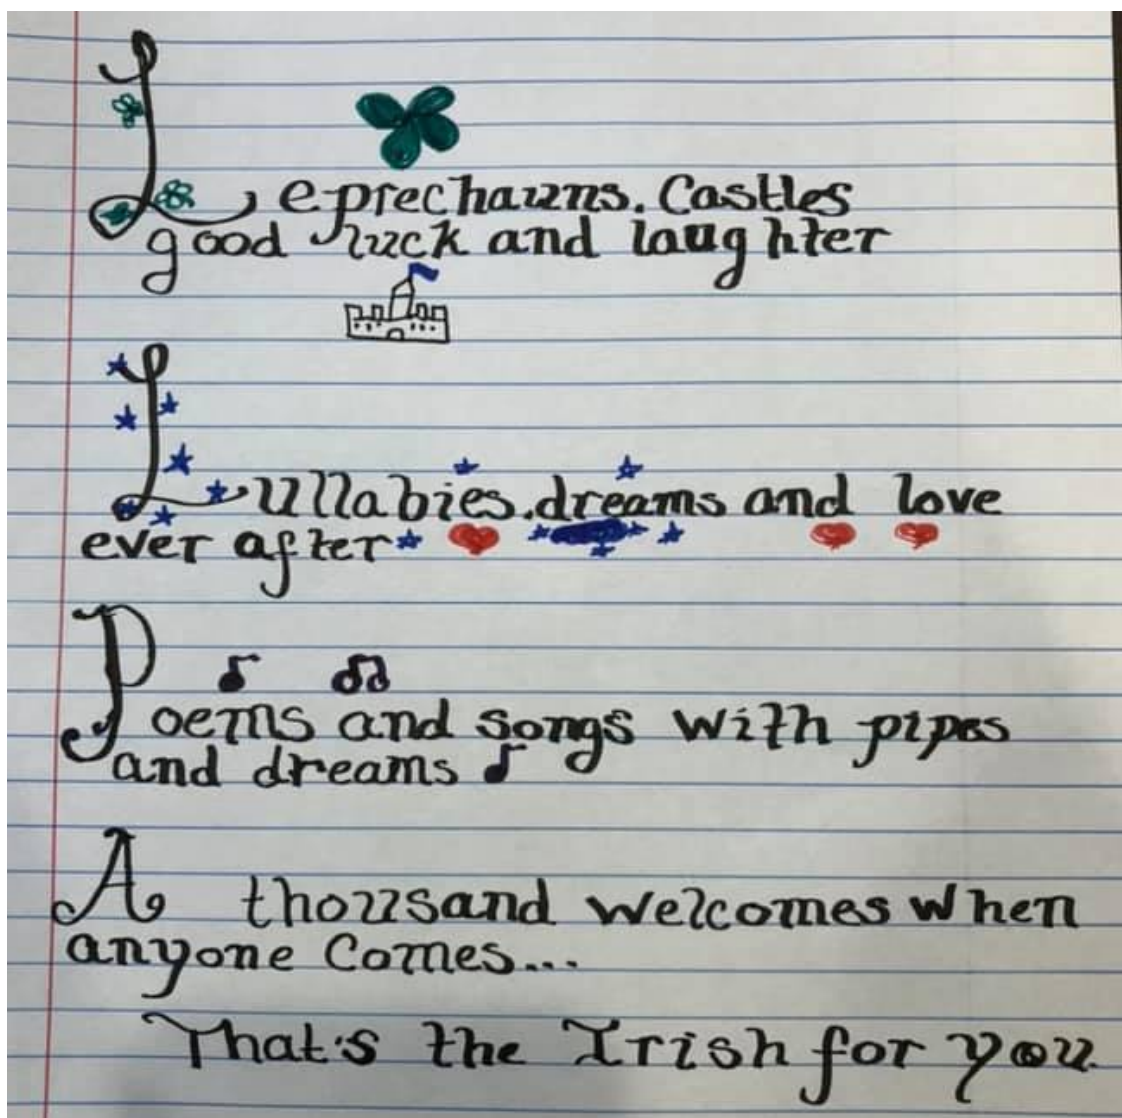 Leprechauns. Castles
good luck and laughter
Lullabies. dreams and love
ever after
Poems and songs with pipes
and dreams
A thousand welcomes when
anyone comes...
That's the Irish for you.